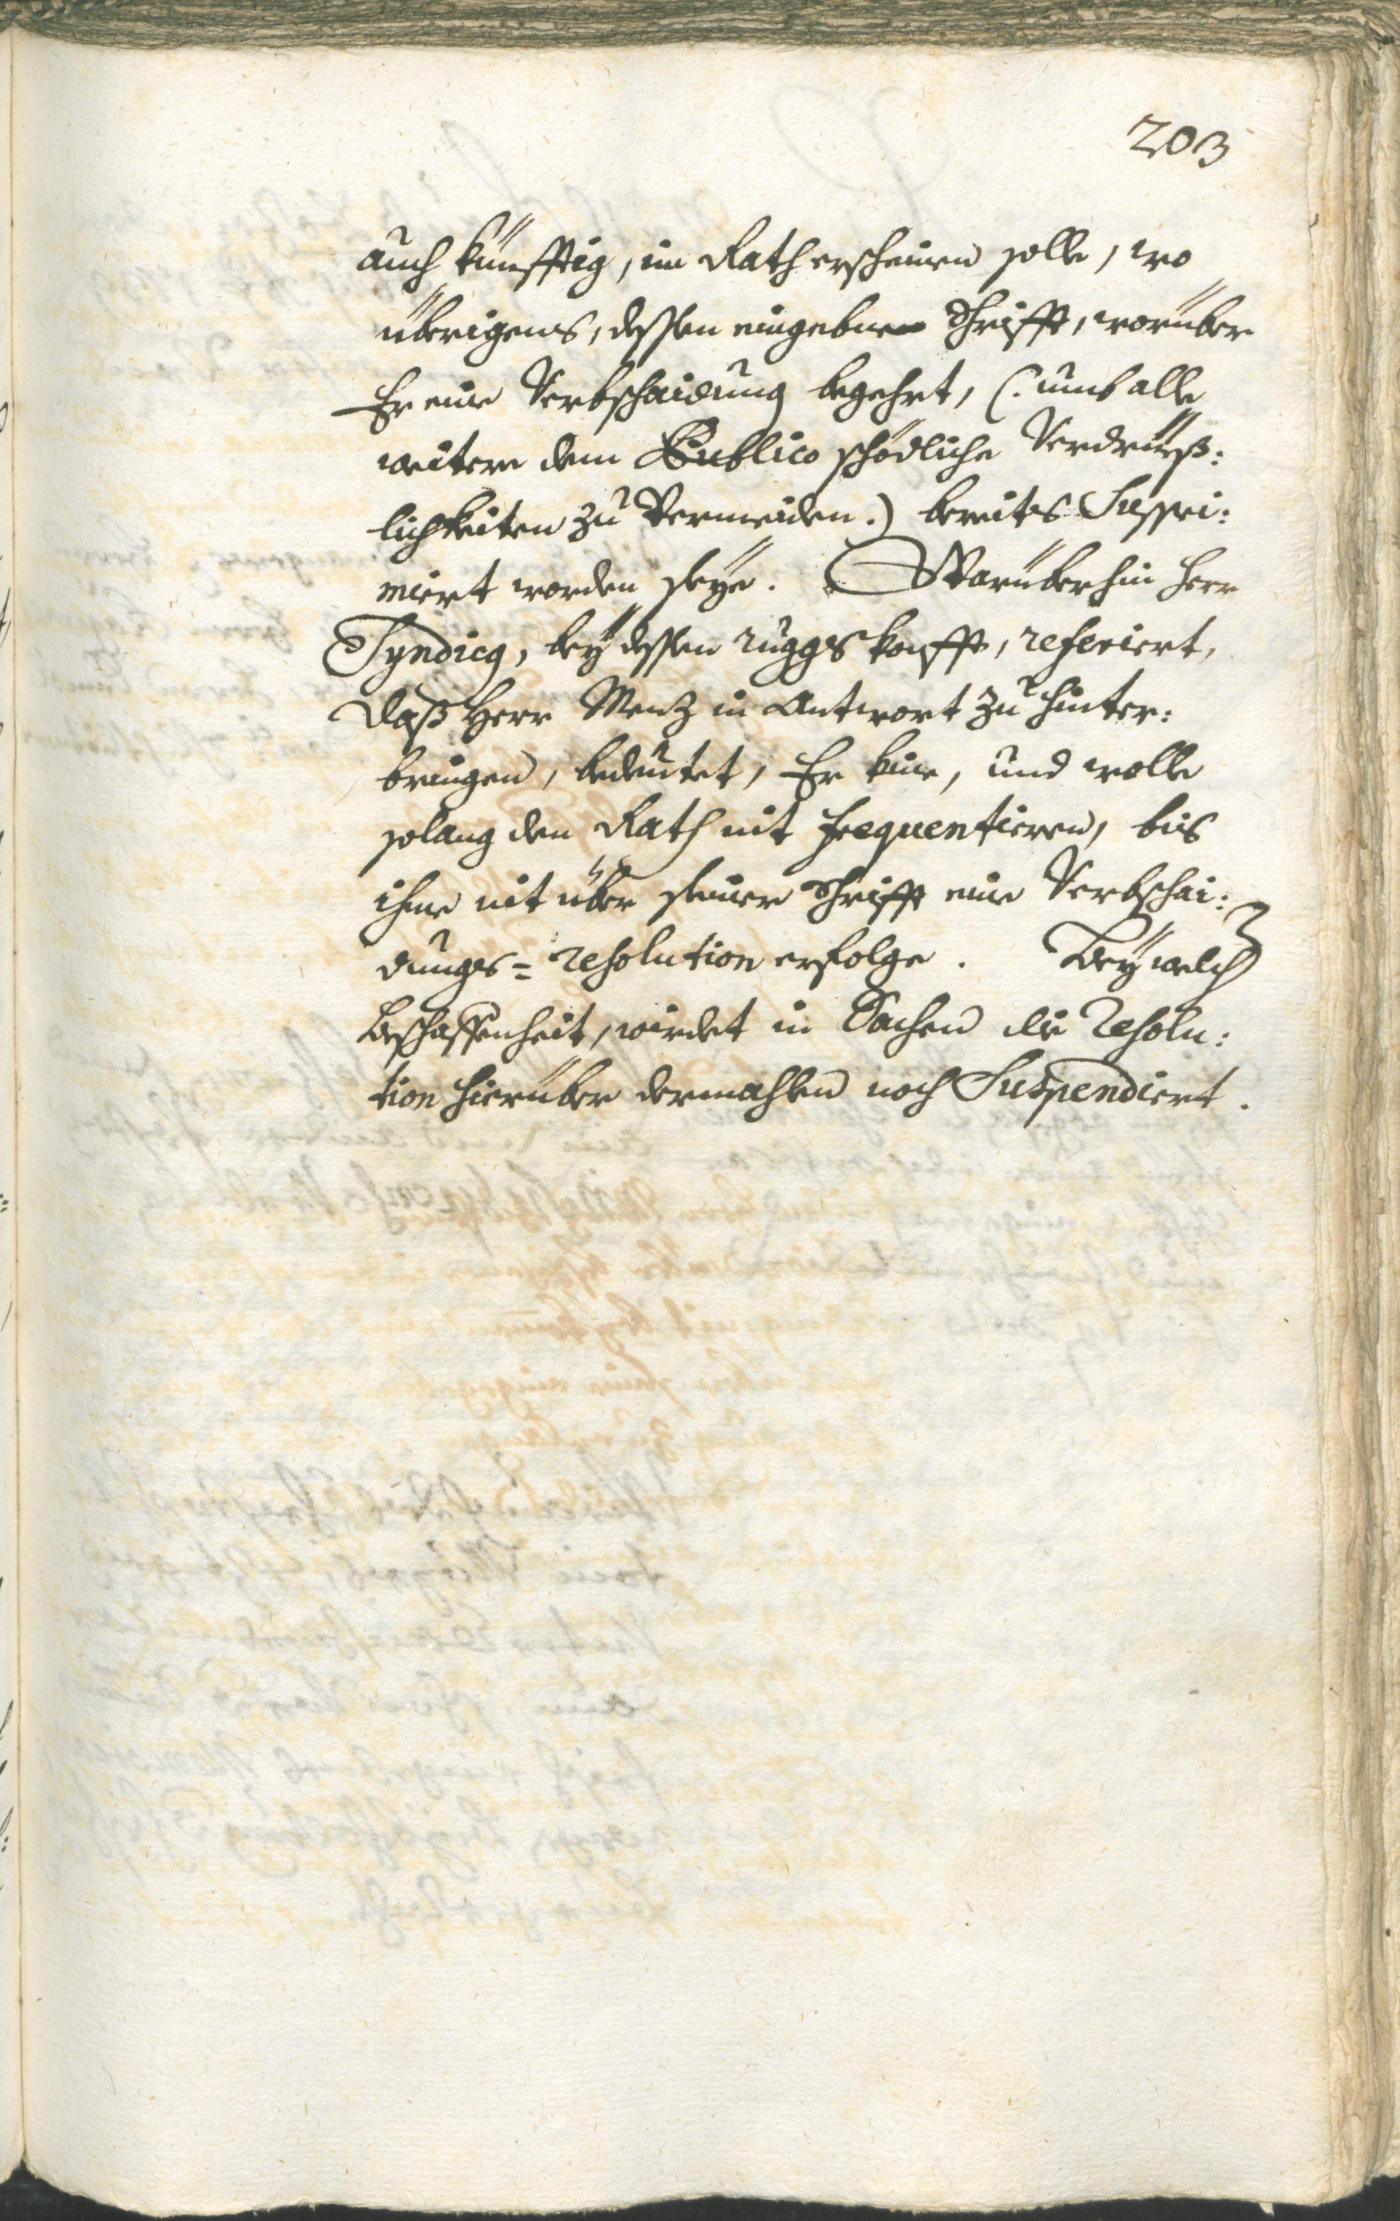 203
auch künfftig, im Rath erscheinen solle, wo
überigens, dessen eingebne Schrifft, worüber
Er eine Verbschaidung begehrt, (: umb alle
weitere dem Publico schödliche Verdrüeß:
lichkeiten zu Vermeiden :) bereits Suppri:
miert worden seÿe. Warüberhin Herr
Syndicq, beÿ dessen ruggskonfft, referiert,
daß Herr Menz in Antwort zu hinter:
bringen, bedeutet, Er kine, und wolle
solang den Rath nit frequentieren, bis
ihme nit über seiner Schrifft eine Verbschai:
dungs= resolution erfolge. Beÿ welch
Beschaffenheit, wirdet in Sachen die Resolu:
tion hierüber dermahlen noch Suspendiert.